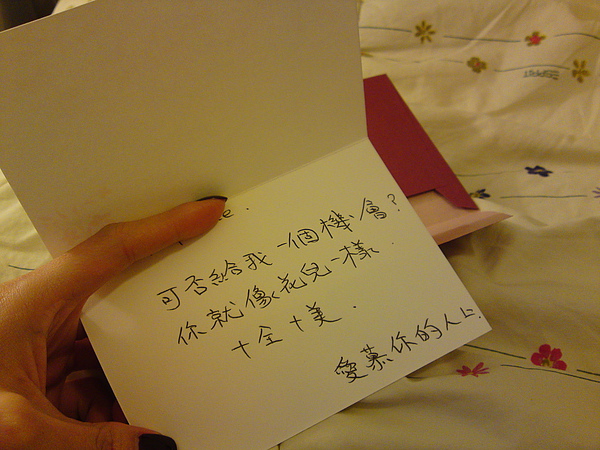 可否給我一個機會?
你就像花兒一樣.
十全十美.
愛慕你的人上.
ESPRIT